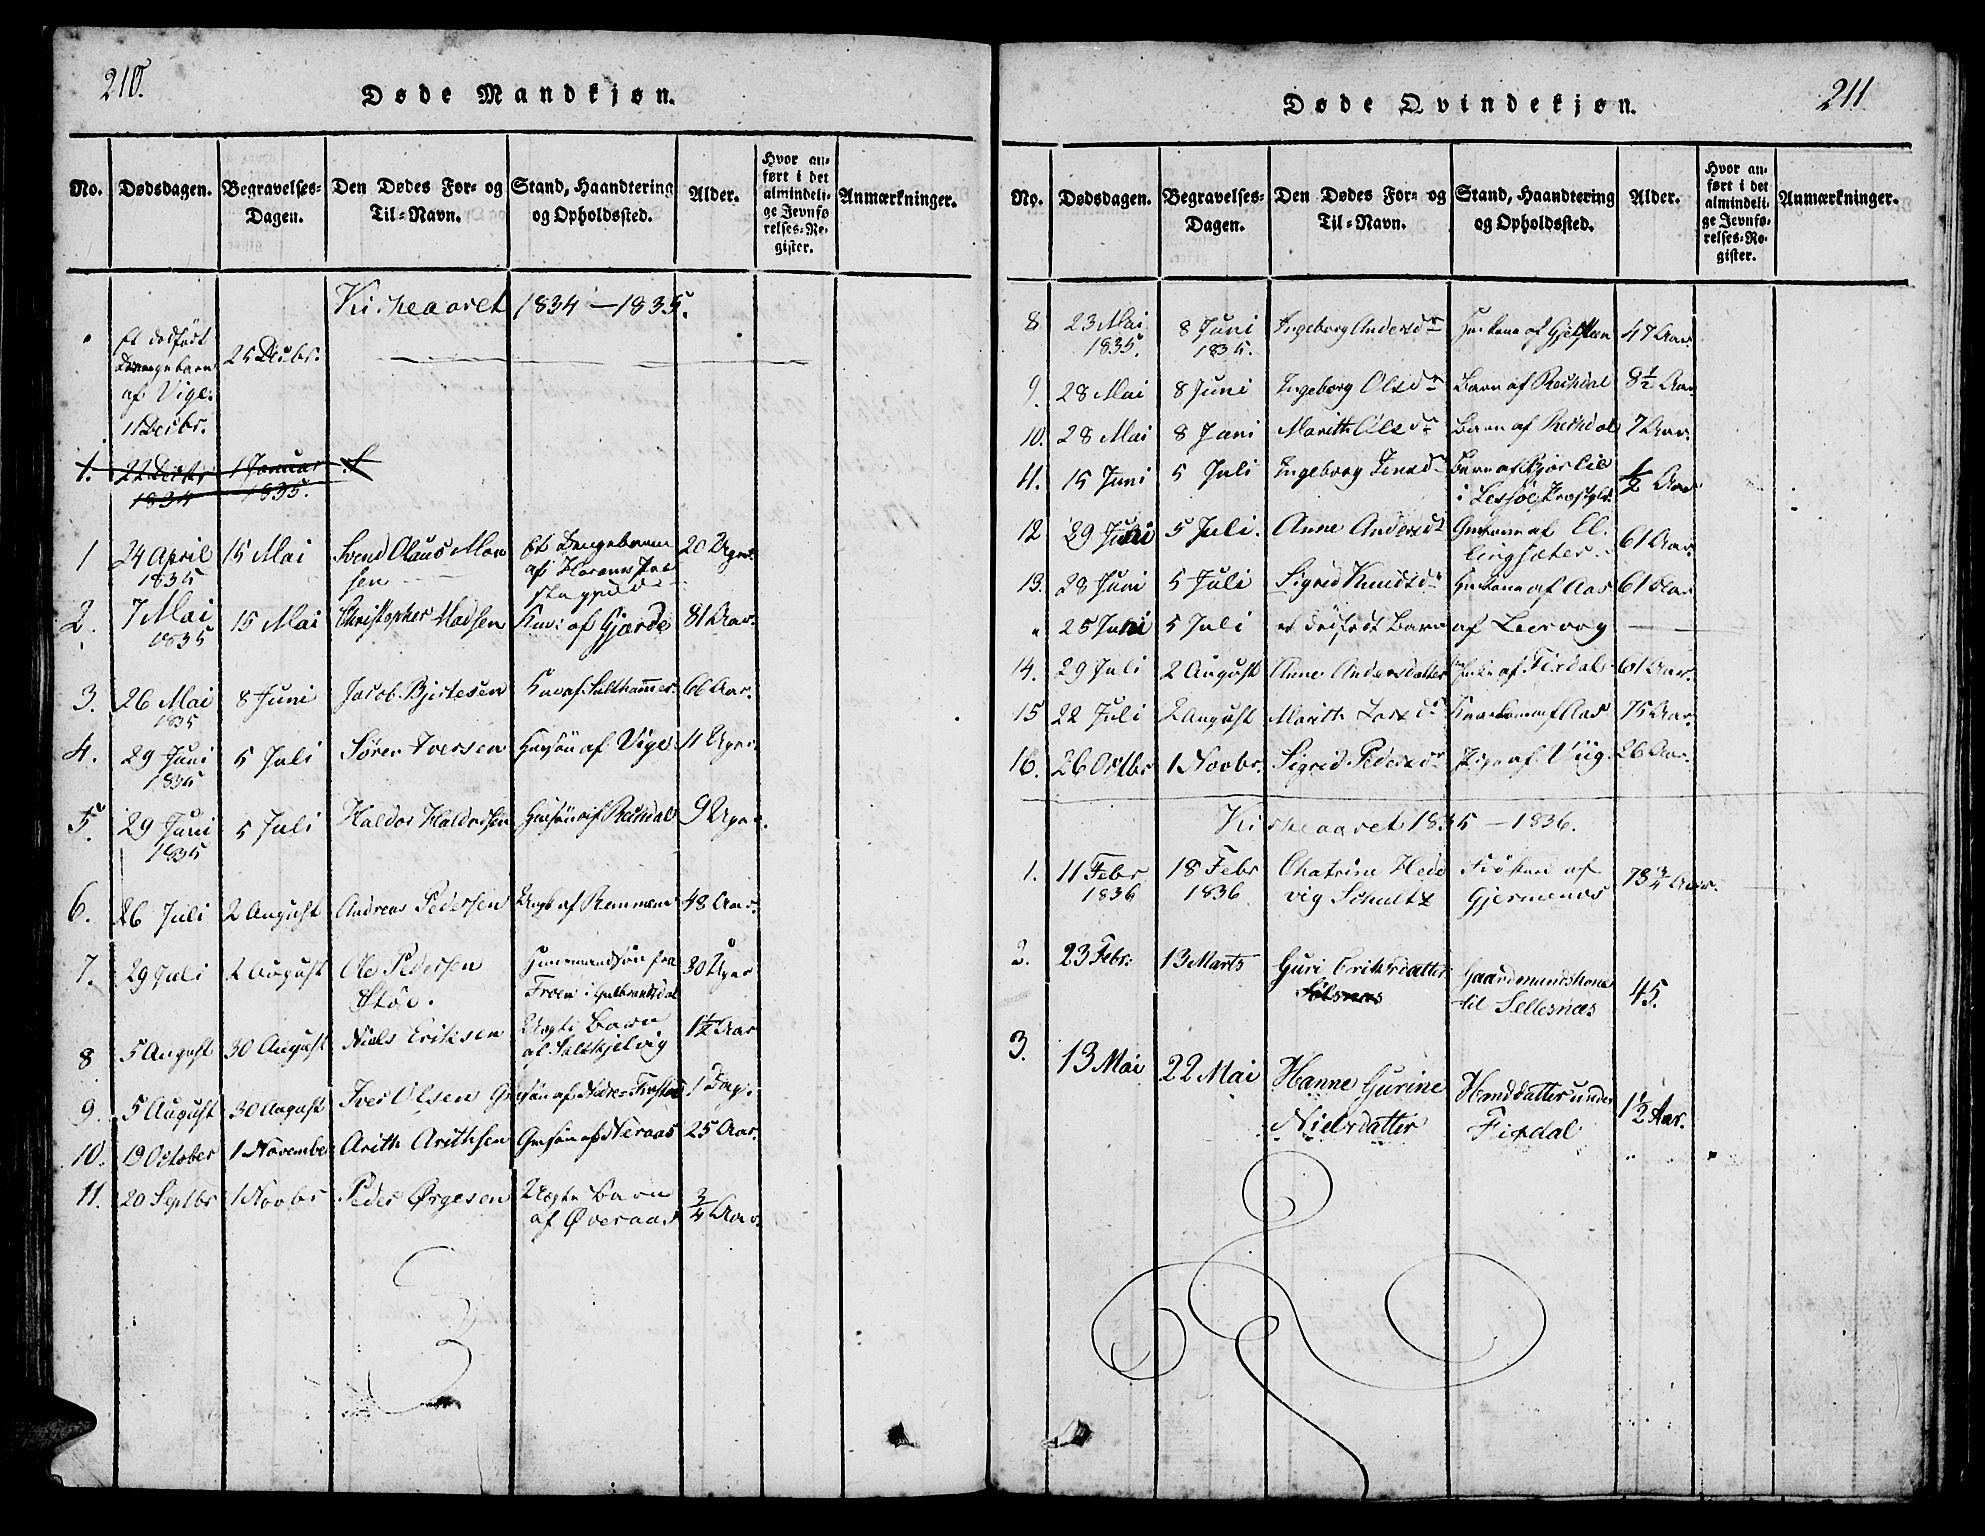 210.
Døde Mandkjøn.
No. Dødsdagen. Begravelses-Dagen. Den Dødes For- og Til-Navn. Stand, Haandtering og Opholdssted. Alder. Hvor anført i det almindelige Jevnførelses-Register. Anmærkninger.
Kirkeaaret 1834 – 1835.
et dødfødt Drengebarn af Vige. 11 Decbr. 25 Decbr.
1. 22 Decbr 1834 1 Januar 1835.
1 24 April 1835 15 Mai Svend Olaus Monsen et Drengebarn af Horens Præstegjeld 20 Uger
2. 7 Mai 1835 15 Mai Christopher Madsen Kaar: af Gjerde 81 Aar.
3. 26 Mai 1835 8 Juni Jacob Bjertesen Kaar af Salthammer 66 Aar.
4. 29 Juni 1835 5 Juli Søren Iversen Huusøn af Vige 11 Uger.
5. 29 Juni 1835 5 Juli Haldor Haldorsen Grsøn af Rechdal 9 Uger.
6. 26 Juli 2 August Andreas Pedersen Ungk af Remmem 48 Aar.
7. 29 Juli 2 August Ole Pedersen Støe. Huusmandsøn fra Froen i Gulbrandsdal 30 Uger
8 5 August 30 August Niels Eriksen Uægte Barn af Saltkjelvig 1½ Aar
9. 5 August 30 August Iver Olsen Grsøn af Nedre-Frostad 1 Dag.
10. 19 October 1 November Arith Arithsen Grsøn af Neraas 25 Aar.
11. 20 Septbr 1 Novbr Peder Ørgesen Uægte Barn af Øveraas ¾ Aar.
211
Døde Qvindekjøn.
No. Dødsdagen. Begravelses-Dagen. Den Dødes For- og Til-Navn. Stand, Haandtering og Opholdssted. Alder. Hvor anført i det almindelige Jevnførelses-Register. Anmærkninger.
8 23 Mai 1835. 8 Juni 1835. Ingeborg Andersdr Huskone af Gjelsten 47 Aar.
9. 28 Mai 8 Juni Ingeborg Olsdr Barn af Rechdal 8½ Aar
10. 28 Mai 8 Juni Marith Olsdr Barn af Rechdal 7 Aar.
11. 15 Juni 5 Juli Ingeborg Jensdr Barn af Bjørlie i Lessøe Præstgld. ½ Aar
12 29 Juni 5 Juli. Anne Andersdr Grkone af Ellingsæter 61 Aar
13. 28 Juni 5 Juli Sigrid Knudsdr Huskone af Aas 61 Aar
25 Juni 5 Juli et dødfødt Barn af Leervog
14. 29 Juli 2 August Anne Andersdatter Enke af Fixdal 61 Aar.
15 22 Juli 2 August Marith Larsdr Kaarkone af Aas 75 Aar.
16. 26 Octbr 1 Novbr. Sigrid Pedersdr Pige af Viig. 26 Aar.
Kirkeaaret 1835 – 1836.
1. 11 Febr 1836 18 Febr 1836 Chatrine Hedevig Schultz Frøken af Gjermenæs 73¾ Aar.
2. 23 Febr. 13 Marts Guri Eriksdatter Gaardmandskone til Sellesnæs 45.
3. 13 Mai 22 Mai Hanne Gurine Nielsdatter Hmdsdatter under Fixdal 1½ Aar.